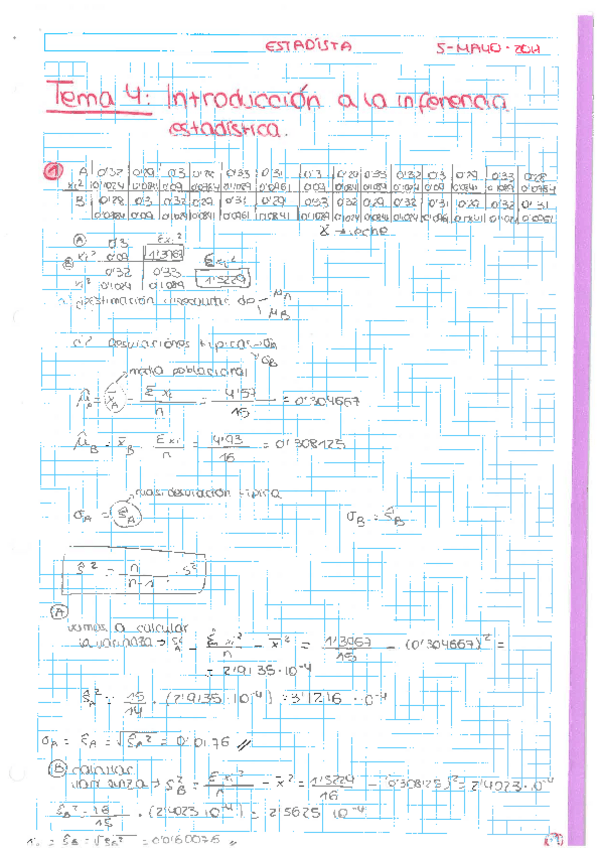 ESTADÍSTA 5-MAYO-2011
Tema 4: Introducción a la inferencia
estadística.
① A 0'32 0'29 0'3 0'28 0'33 0'31 0'3 0'29 0'33 0'32 0'3 0'29 0'33 0'28
xi² 0'1024 0'0841 0'09 0'0784 0'1089 0'0961 0'09 0'0841 0'1089 0'1024 0'09 0'0841 0'1089 0'0784
B 0'28 0'3 0'32 0'29 0'31 0'29 0'33 0'32 0'29 0'32 0'31 0'29 0'32 0'31
X → leche
Ⓐ 0'3 Σxi²
xi² 0'09 1'3967
Ⓑ 0'32 0'33 Σxi²
xi² 0'1024 0'1089 1'5229
estimación insesgada de μA
μB
desviaciones típicas σA
σB
media poblacional
μ̂A = x̄A = Σxi / n = 4'57 / 15 = 0'304667
μ̂B = x̄B = Σxi / n = 4'93 / 16 = 0'308125
cuasidesviación típica
σA = ŝA σB = ŝB
ŝ² = n / n-1 · s²
Ⓐ
vamos a calcular
la varianza → s²A = Σxi² / n - x̄² = 1'3967 / 15 - (0'304667)² =
= 2'9135·10⁻⁴
ŝA² = 15 / 14 · (2'9135·10⁻⁴) = 3'1216·10⁻⁴
σA = ŝA = √ŝA² = 0'0176 //
Ⓑ calcular
varianza → s²B = Σxi² / n - x̄² = 1'5229 / 16 - (0'308125)² = 2'4023·10⁻⁴
ŝB² = 16 / 15 · (2'4023·10⁻⁴) = 2'5625·10⁻⁴
= ŝB = √ŝB² = 0'0160078 //